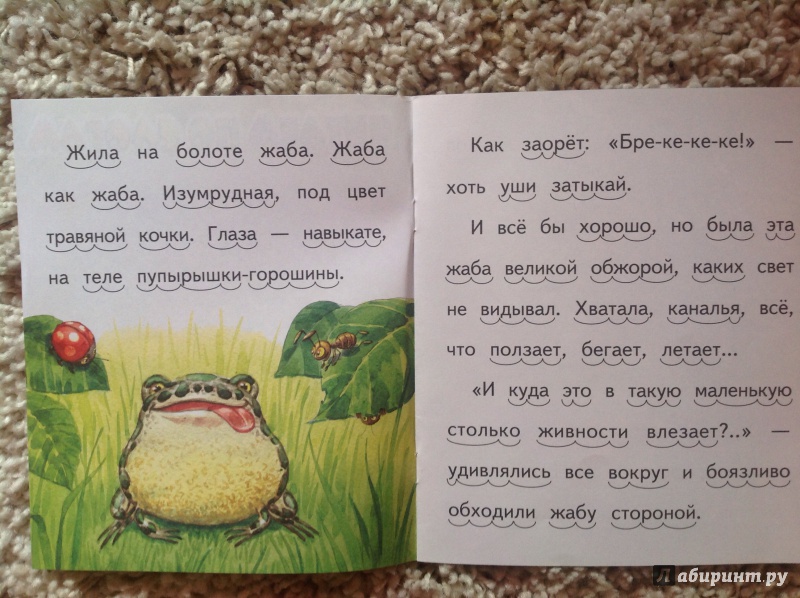 Жила на болоте жаба. Жаба
как жаба. Изумрудная, под цвет
травяной кочки. Глаза — навыкате,
на теле пупырышки-горошины.
Как заорёт: «Бре-ке-ке-ке!» —
хоть уши затыкай.
И всё бы хорошо, но была эта
жаба великой обжорой, каких свет
не видывал. Хватала, каналья, всё,
что ползает, бегает, летает...
«И куда это в такую маленькую
столько живности влезает?..» —
удивлялись все вокруг и боязливо
обходили жабу стороной.
Лабиринт.ру